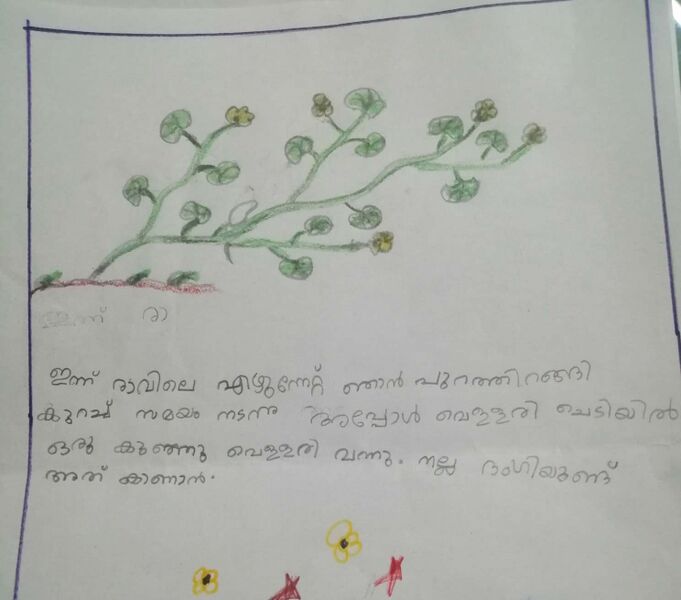 ഇന്ന് രാ
ഇന്ന് രാവിലെ എഴുന്നേറ്റ് ഞാൻ പുറത്തിറങ്ങി
കുറച്ച് സമയം നടന്നു അപ്പോൾ വെള്ളരി ചെടിയിൽ
ഒരു കുഞ്ഞു വെള്ളരി വന്നു. നല്ല ഭംഗിയുണ്ട്
അത് കാണാൻ.